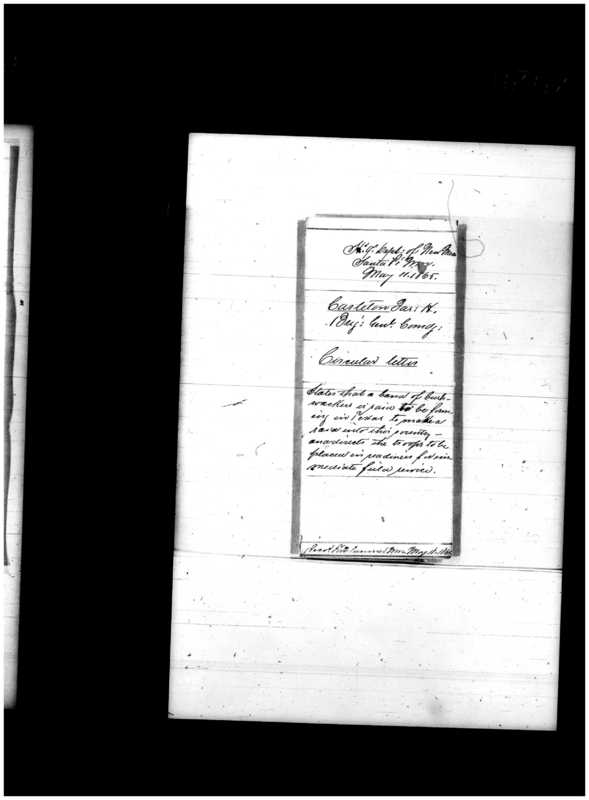 Hd. Qrs. Dept: of New Mex
Santa Fé N. M.
May 11. 1865.
Carleton Jas: H.
Brig: Genl. Comdg:
Circular letter
States that a band of bush-
wackers is said to be form-
ing in Texas to make a
raid into this country —
and directs the troops to be
placed in readiness for im
mediate field service.
Recd. Fort Sumner N.M. May